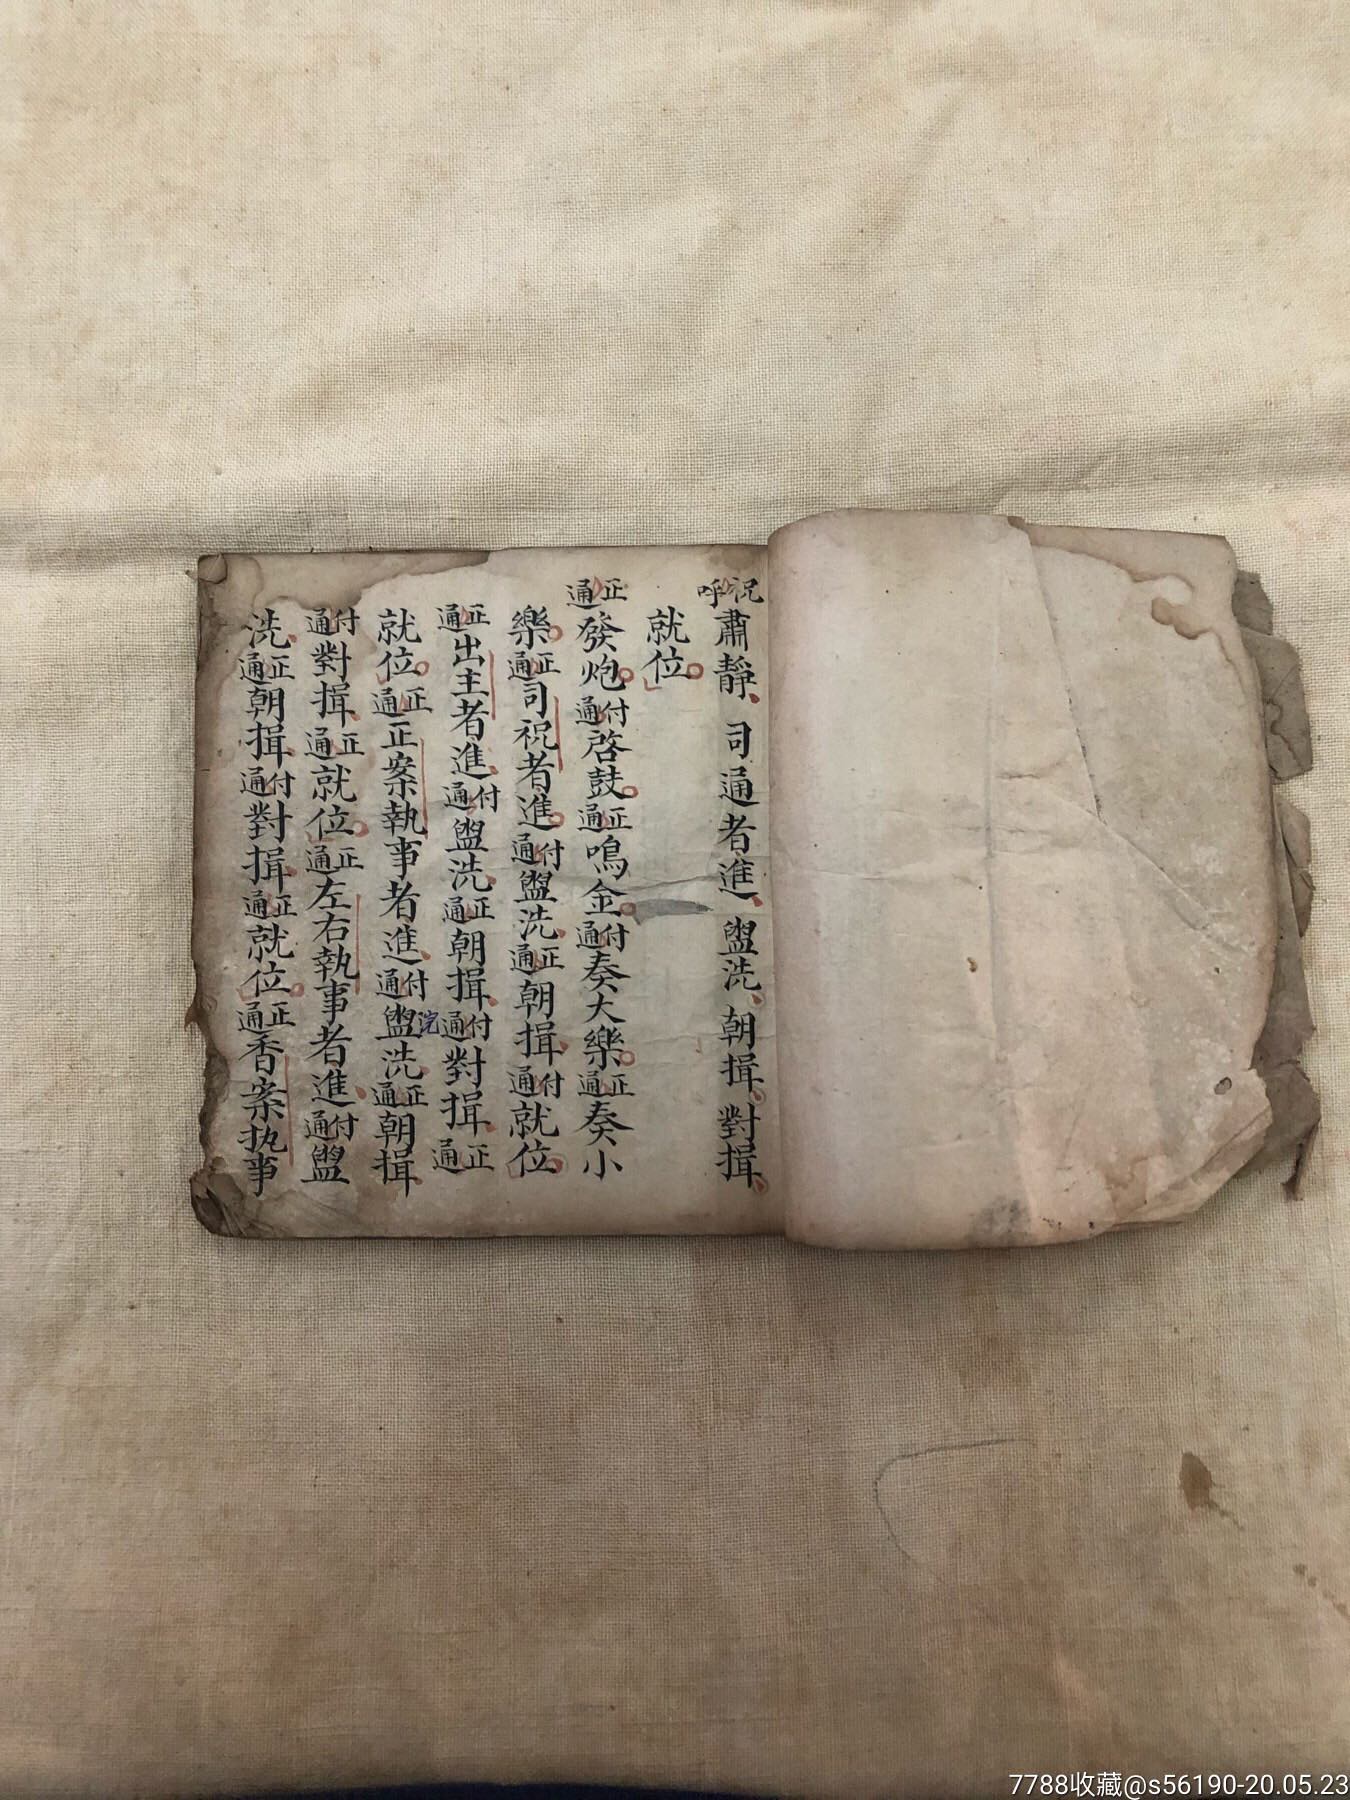 祝呼肅靜司通者進盥洗朝揖對揖
就位
正通發炮付通啓鼓正通鳴金付通奏大樂正通奏小
樂正通司祝者進付通盥洗正通朝揖付通就位
正通出主者進付通盥洗正通朝揖付通對揖正通
就位正通正案執事者進付通盥洗正通朝揖
付通對揖正通就位正通左右執事者進付通盥
洗正通朝揖付通對揖正通就位正通香案执事
7788收藏@s56190-20.05.23